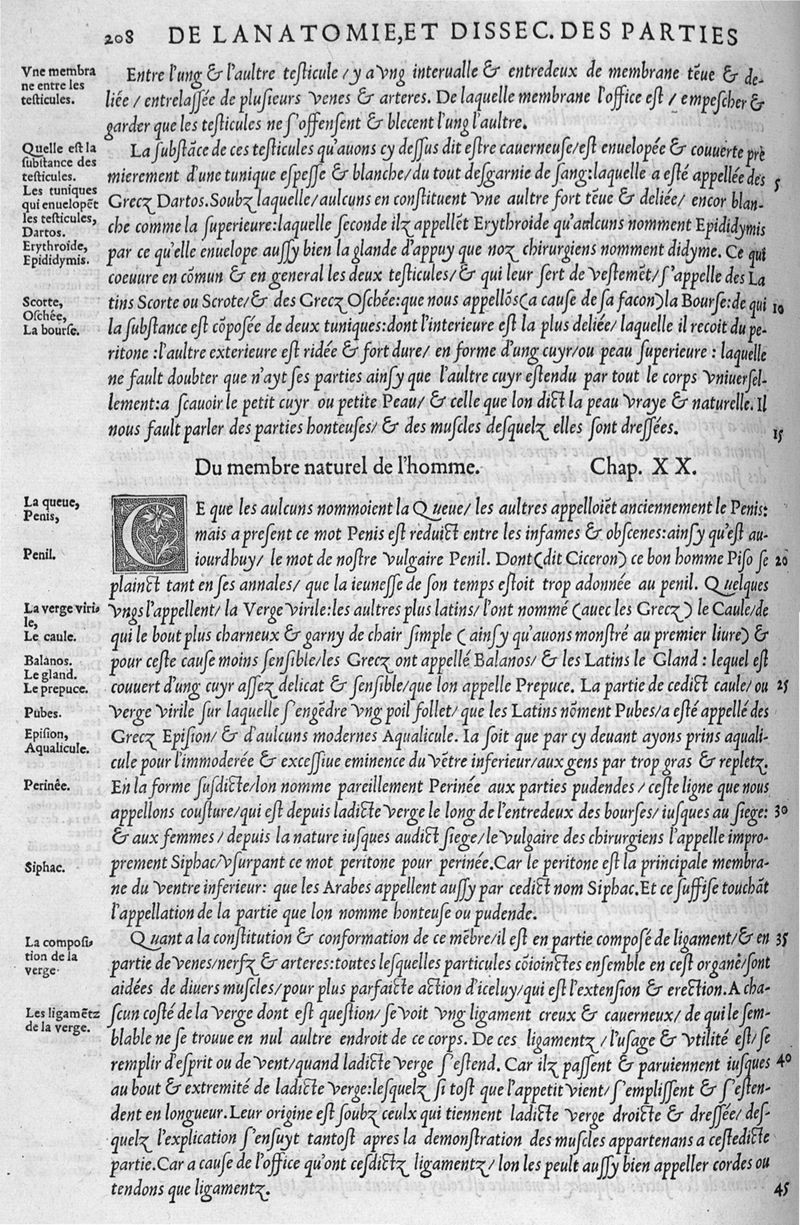 208 DE LANATOMIE,ET DISSEC. DES PARTIES
Vne membra
ne entre les
testicules.
Entre l'ung & l'aultre testicule / y a vng interualle & entredeux de membrane tēue & de-
liée / entrelassée de plusieurs venes & arteres. De laquelle membrane l'office est / empescher &
garder que les testicules ne s'offensent & blecent l'ung l'aultre.
Quelle est la
substance des
testicules.
Les tuniques
qui enuelopēt
les testicules,
Dartos.
Erythroide,
Epididymis.
La substāce de ces testicules qu'auons cy dessus dit estre cauerneuse/est enuelopée & couuerte prè
mierement d'une tunique espesse & blanche/du tout desgarnie de sang:laquelle a esté appellée des
5
Grecz Dartos.Soubz laquelle/aulcuns en constituent vne aultre fort tēue & deliée/ encor blan-
che comme la superieure:laquelle seconde ilz appellēt Erythroide qu'aulcuns nomment Epididymis
par ce qu'elle enuelope aussy bien la glande d'appuy que noz chirurgiens nomment didyme. Ce qui
coeuure en cōmun & en general les deux testicules/& qui leur sert de vestemēt/s'appelle des La
Scorte,
Oschée,
La bourse.
tins Scorte ou Scrote/& des Grecz Oschée:que nous appellōs(a cause de sa facon)la Bourse:de qui
10
la substance est cōposée de deux tuniques:dont l'interieure est la plus deliée/ laquelle il recoit du pe-
ritone :l'aultre exterieure est ridée & fort dure/ en forme d'ung cuyr/ou peau superieure : laquelle
ne fault doubter que n'ayt ses parties ainsy que l'aultre cuyr estendu par tout le corps vniuersel-
lement:a scauoir le petit cuyr ou petite Peau/ & celle que lon dict la peau vraye & naturelle. Il
nous fault parler des parties honteuses/ & des muscles desquelz elles sont dressées.
15
Du membre naturel de l'homme. Chap. XX.
La queue,
Penis,
CE que les aulcuns nommoient la Queue/ les aultres appelloiēt anciennement le Penis:
mais a present ce mot Penis est reduict entre les infames & obscenes:ainsy qu'est au-
Penil.
iourdhuy/ le mot de nostre vulgaire Penil. Dont(dit Ciceron) ce bon homme Piso se
20
plainct tant en ses annales/ que la ieunesse de son temps estoit trop adonnée au penil. Quelques
La verge viri-
le,
Le caule.
vngs l'appellent/ la Verge virile:les aultres plus latins/ l'ont nommé (auec les Grecz) le Caule/de
qui le bout plus charneux & garny de chair simple (ainsy qu'auons monstré au premier liure) &
Balanos.
Le gland.
Le prepuce.
pour ceste cause moins sensible/les Grecz ont appellé Balanos/ & les Latins le Gland : lequel est
couuert d'ung cuyr assez delicat & sensible/que lon appelle Prepuce. La partie de cedict caule/ ou
25
Pubes.
verge virile sur laquelle s'engēdre vng poil follet/ que les Latins nōment Pubes/a esté appellé des
Epision,
Aqualicule.
Grecz Epision/ & d'aulcuns modernes Aqualicule. Ia soit que par cy deuant ayons prins aquali-
cule pour l'immoderée & excessiue eminence du vētre inferieur/aux gens par trop gras & repletz.
Perinée.
En la forme susdicte/lon nomme pareillement Perinée aux parties pudendes / ceste ligne que nous
appellons cousture/qui est depuis ladicte verge le long de l'entredeux des bourses/ iusques au siege:
30
& aux femmes / depuis la nature iusques audict siege/le vulgaire des chirurgiens l'appelle impro-
Siphac.
prement Siphac/vsurpant ce mot peritone pour perinée.Car le peritone est la principale membra-
ne du ventre inferieur: que les Arabes appellent aussy par cedict nom Siphac.Et ce suffise touchāt
l'appellation de la partie que lon nomme honteuse ou pudende.
La composi-
tion de la
verge.
Quant a la constitution & conformation de ce mēbre/il est en partie composé de ligament/& en
35
partie de venes/nerfz & arteres:toutes lesquelles particules cōioinctes ensemble en cest organe/sont
aidées de diuers muscles/pour plus parfaicte action d'iceluy/qui est l'extension & erection.A cha-
Les ligamētz
de la verge.
scun costé de la verge dont est question/se voit vng ligament creux & cauerneux/ de qui le sem-
blable ne se trouue en nul aultre endroit de ce corps. De ces ligamentz / l'usage & vtilité est/ se
remplir d'esprit ou de vent/quand ladicte verge s'estend. Car ilz passent & paruiennent iusques
40
au bout & extremité de ladicte verge:lesquelz si tost que l'appetit vient/ s'emplissent & s'esten-
dent en longueur.Leur origine est soubz ceulx qui tiennent ladicte verge droicte & dressée/ des-
quelz l'explication s'ensuyt tantost apres la demonstration des muscles appartenans a cestedicte
partie.Car a cause de l'office qu'ont cesdictz ligamentz/ lon les peult aussy bien appeller cordes ou
tendons que ligamentz.
45